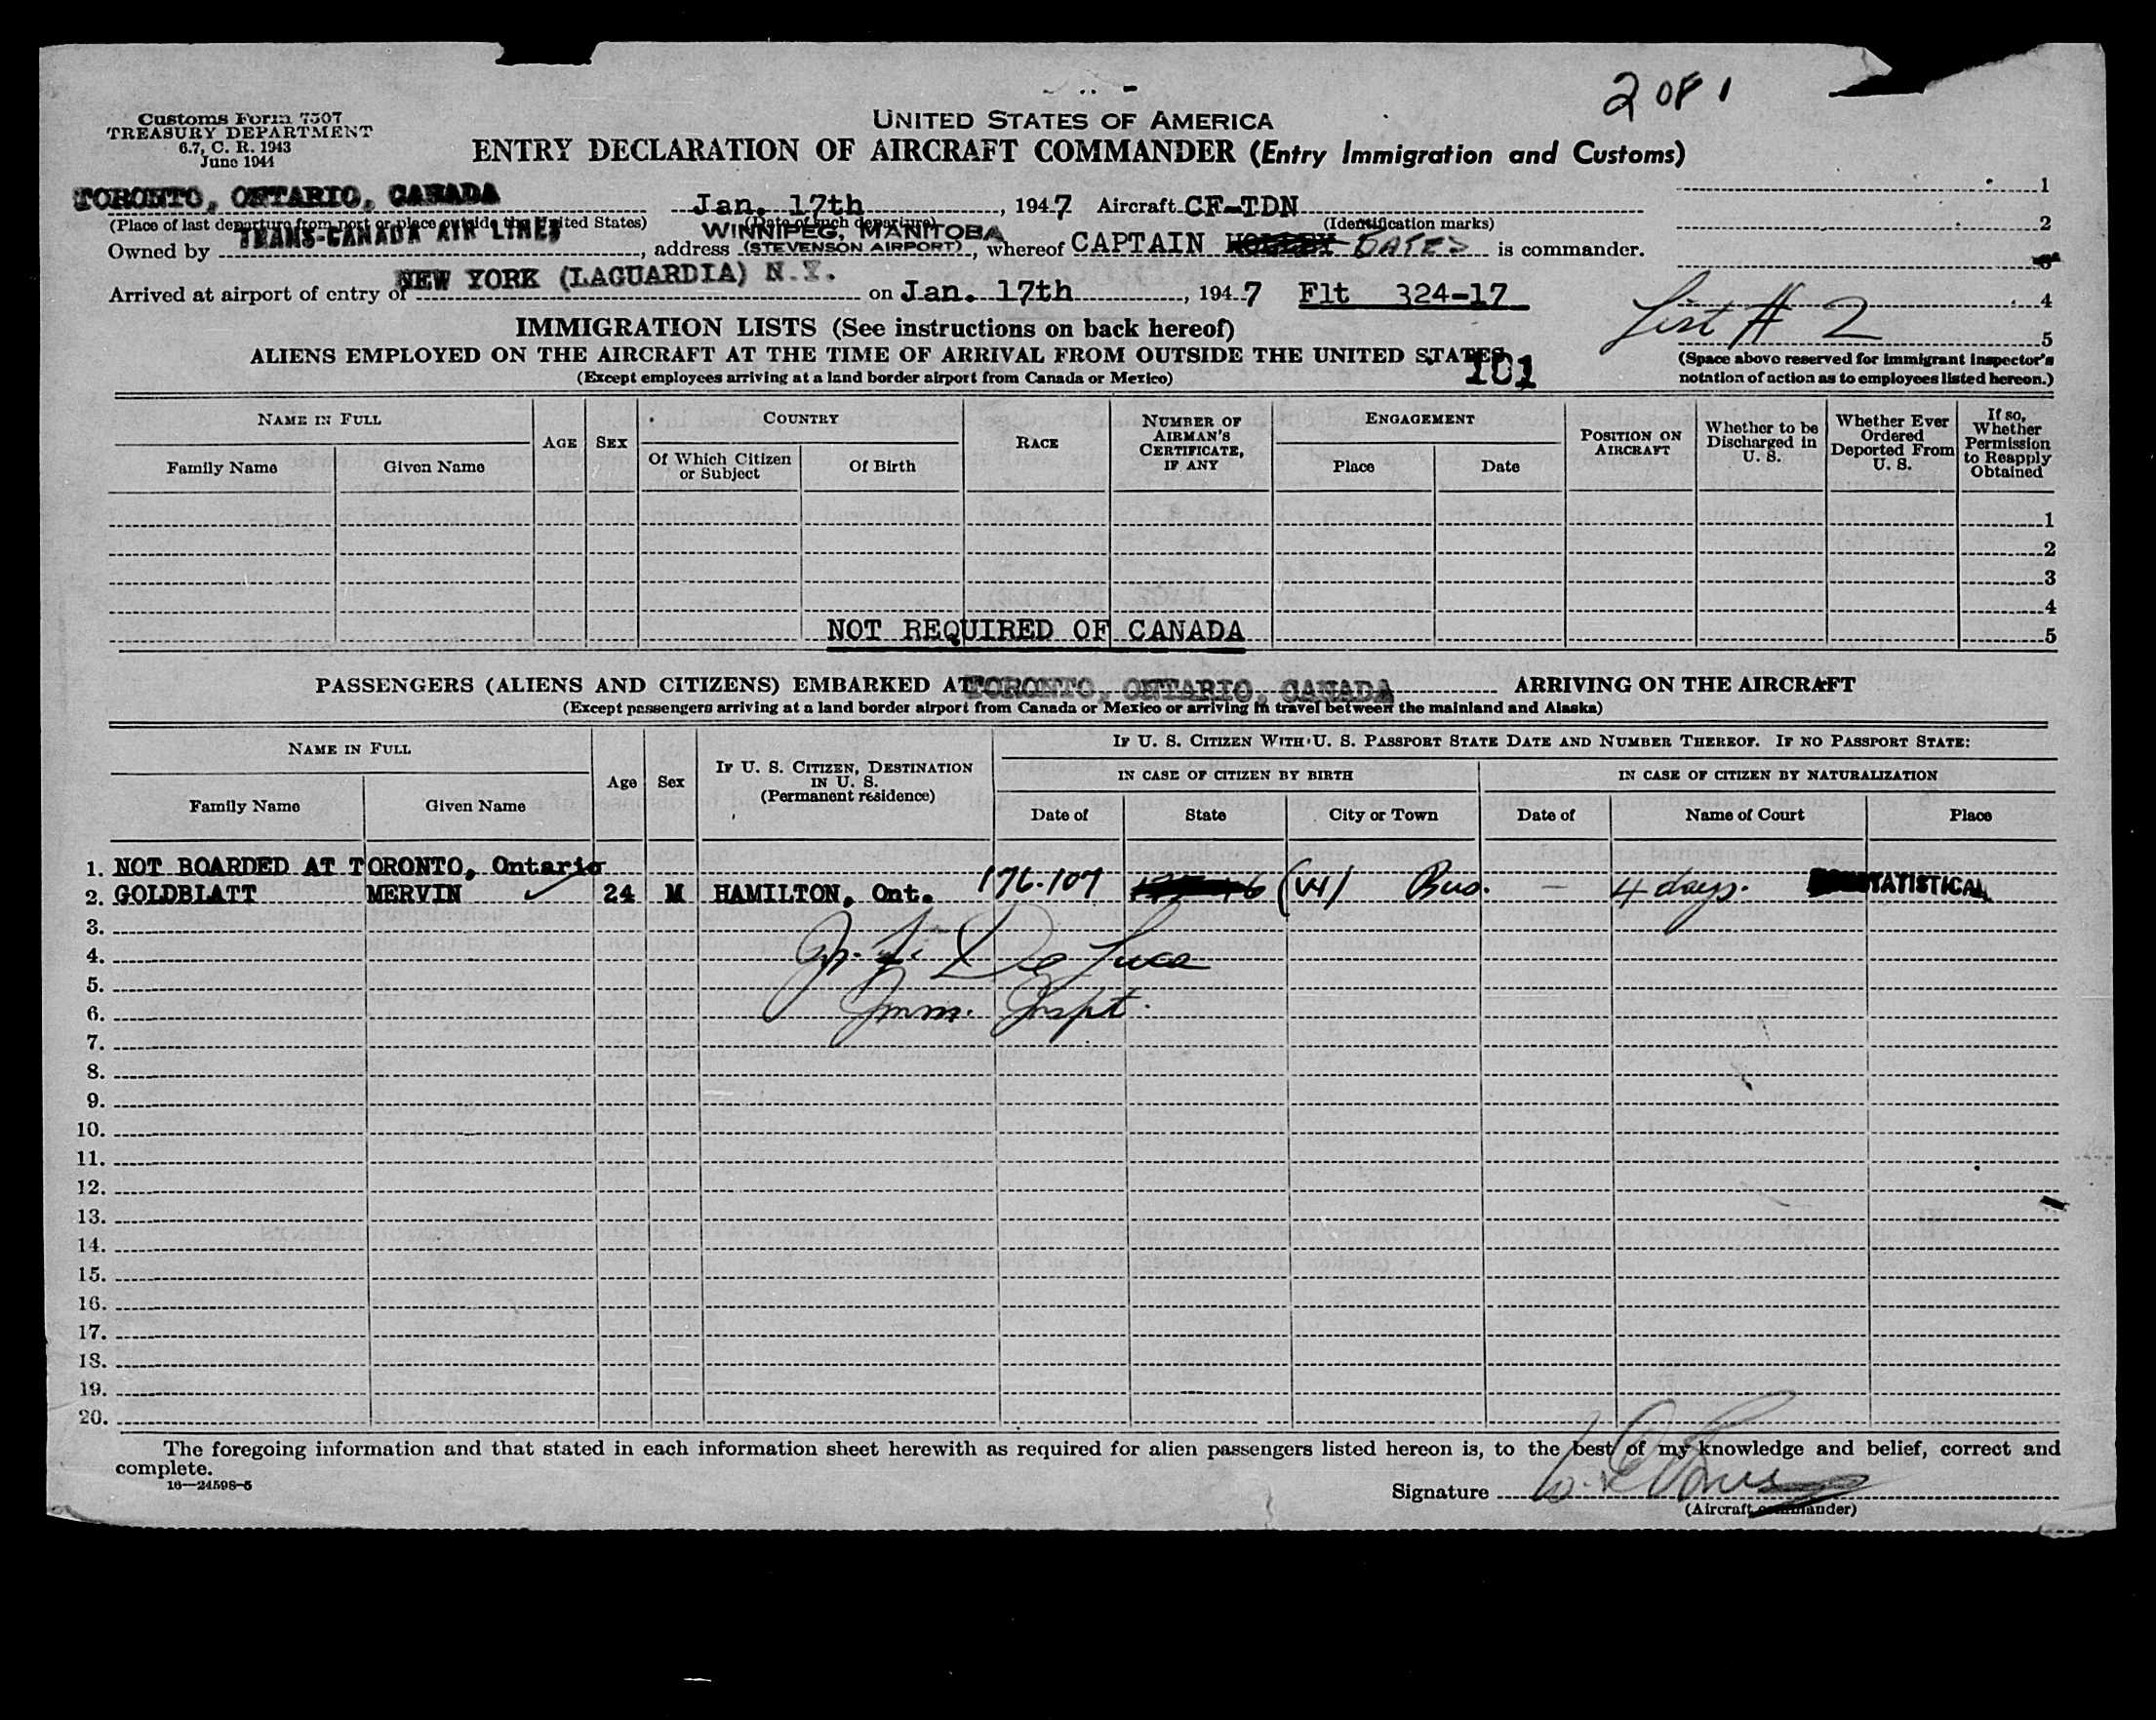 2 OF 1
Customs Form 7507
TREASURY DEPARTMENT
6.7, C. R. 1943
June 1944
UNITED STATES OF AMERICA
ENTRY DECLARATION OF AIRCRAFT COMMANDER (Entry Immigration and Customs)
TORONTO, ONTARIO, CANADA Jan. 17th, 1947 Aircraft CF-TDN
(Place of last departure from port or place outside the United States) (Date of such departure) (Identification marks)
Owned by TRANS-CANADA AIR LINES, address WINNIPEG, MANITOBA (STEVENSON AIRPORT), whereof CAPTAIN BATES is commander.
Arrived at airport of entry of NEW YORK (LAGUARDIA) N.Y. on Jan. 17th, 1947 Flt 324-17
1
2
3
4
5
List # 2
(Space above reserved for Immigrant Inspector's
notation of action as to employees listed hereon.)
IMMIGRATION LISTS (See instructions on back hereof)
ALIENS EMPLOYED ON THE AIRCRAFT AT THE TIME OF ARRIVAL FROM OUTSIDE THE UNITED STATES
101
(Except employees arriving at a land border airport from Canada or Mexico)
NAME IN FULL
Family Name Given Name
AGE SEX
COUNTRY
Of Which Citizen or Subject Of Birth
RACE
NUMBER OF AIRMAN'S CERTIFICATE, IF ANY
ENGAGEMENT
Place Date
POSITION ON AIRCRAFT
Whether to be Discharged in U. S.
Whether Ever Ordered Deported From U. S.
If so, Whether Permission to Reapply Obtained
1
2
3
4
NOT REQUIRED OF CANADA 5
PASSENGERS (ALIENS AND CITIZENS) EMBARKED AT TORONTO, ONTARIO, CANADA ARRIVING ON THE AIRCRAFT
(Except passengers arriving at a land border airport from Canada or Mexico or arriving in travel between the mainland and Alaska)
NAME IN FULL
Family Name Given Name
Age Sex
IF U. S. CITIZEN, DESTINATION IN U. S.
(Permanent residence)
IF U. S. CITIZEN WITH U. S. PASSPORT STATE DATE AND NUMBER THEREOF. IF NO PASSPORT STATE:
IN CASE OF CITIZEN BY BIRTH IN CASE OF CITIZEN BY NATURALIZATION
Date of State City or Town Date of Name of Court Place
1. NOT BOARDED AT TORONTO, Ontario
2. GOLDBLATT MERVIN ✓ 24 M HAMILTON, Ont. 176-107 Bus. — 4 days. TATISTICAL
3.
4. De Luca
5.
6. Imm. Inspt.
7.
8.
9.
10.
11.
12.
13.
14.
15.
16.
17.
18.
19.
20.
The foregoing information and that stated in each information sheet herewith as required for alien passengers listed hereon is, to the best of my knowledge and belief, correct and
complete.
16—24598-5
Signature
(Aircraft commander)